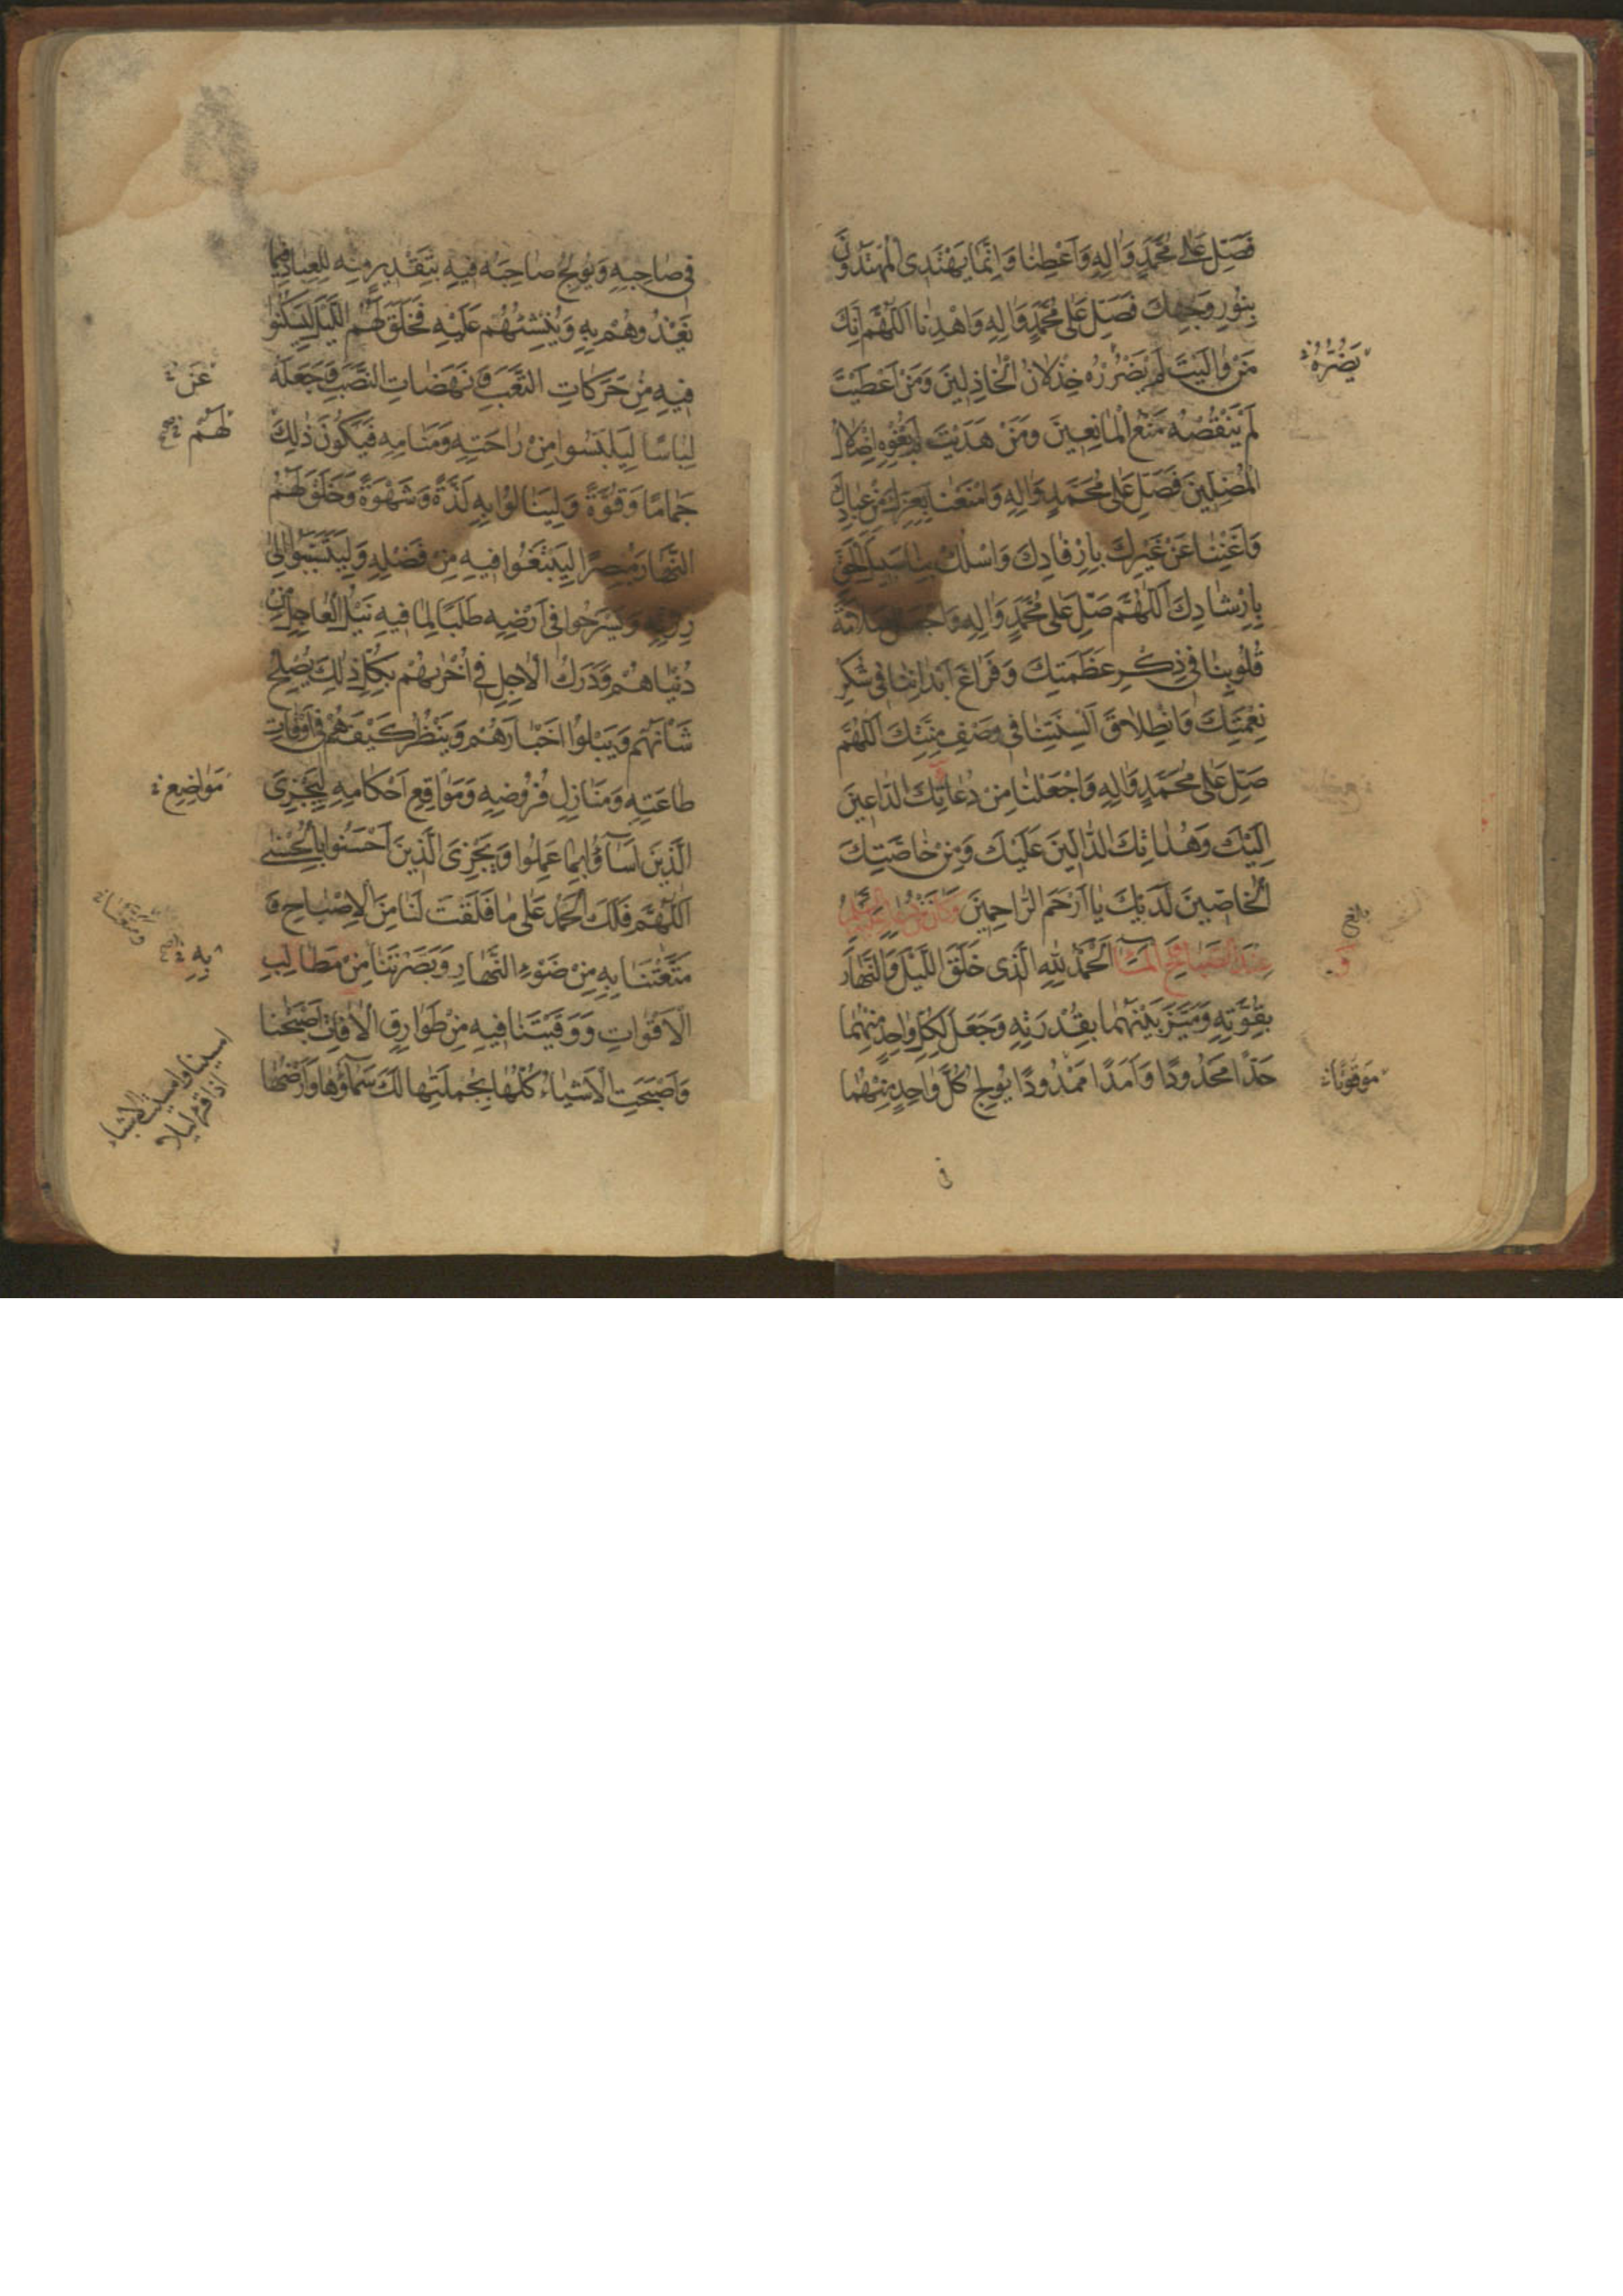 فَصَلِّ عَلى مُحَمَّدٍ وَالِهِ وَاَعْطِنا وَاِنَّما يَهْتَدِى الْمُهْتَدُونَ
بِنُورِ وَجْهِكَ فَصَلِّ عَلى مُحَمَّدٍ وَالِهِ وَاهْدِنا اَللّهُمَّ اِنَّكَ
مَنْ والَيْتَ لَمْ يَضْرُرْهُ خِذْلانُ الْخاذِلِينَ وَمَنْ اَعْطَيْتَ
لَمْ يَنْقُصْهُ مَنْعُ الْمانِعِينَ وَمَنْ هَدَيْتَ لَمْ يُغْوِهِ اِضْلالُ
الْمُضِلِّينَ فَصَلِّ عَلى مُحَمَّدٍ وَالِهِ وَامْنَعْنا بِعِزِّكَ مِنْ عِبادِكَ
وَاَغْنِنا عَنْ غَيْرِكَ بِاِرْفادِكَ وَاسْلُكْ بِنا سَبِيلَ الْحَقِّ
بِاِرْشادِكَ اَللّهُمَّ صَلِّ عَلى مُحَمَّدٍ وَالِهِ وَاجْعَلْ سَلامَةَ
قُلُوبِنا فِى ذِكْرِ عَظَمَتِكَ وَفَراغَ اَبْدانِنا فِى شُكْرِ
نِعْمَتِكَ وَانْطِلاقَ اَلْسِنَتِنا فِى وَصْفِ مِنَّتِكَ اَللّهُمَّ
صَلِّ عَلى مُحَمَّدٍ وَالِهِ وَاجْعَلْنا مِنْ دُعاتِكَ الدّاعِينَ
اِلَيْكَ وَهُداتِكَ الدّالِّينَ عَلَيْكَ وَمِنْ خاصَّتِكَ
الْخاصِّينَ لَدَيْكَ يا اَرْحَمَ الرّاحِمِينَ وَكانَ مِنْ دُعائِهِ عَلَيْهِ السَّلامُ
عِنْدَ الصَّباحِ وَالْمَساءِ اَلْحَمْدُ لِلّهِ الَّذِى خَلَقَ اللَّيْلَ وَالنَّهارَ
بِقُوَّتِهِ وَمَيَّزَ بَيْنَهُما بِقُدْرَتِهِ وَجَعَلَ لِكُلِّ واحِدٍ مِنْهُما
حَدًّا مَحْدُودًا وَاَمَدًا مَمْدُودًا يُولِجُ كُلَّ واحِدٍ مِنْهُما
فى
يَضُرُّهُ
مَوْقُوتًا
فِى صاحِبِهِ وَيُولِجُ صاحِبَهُ فِيهِ بِتَقْدِيرٍ مِنْهُ لِلْعِبادِ فِيما
يَغْذُوهُمْ بِهِ وَيُنْشِئُهُمْ عَلَيْهِ فَخَلَقَ لَهُمُ اللَّيْلَ لِيَسْكُنُوا
فِيهِ مِنْ حَرَكاتِ التَّعَبِ وَنَهَضاتِ النَّصَبِ وَجَعَلَهُ
لِباسًا لِيَلْبَسُوا مِنْ راحَتِهِ وَمَنامِهِ فَيَكُونَ ذلِكَ
جَمامًا وَقُوَّةً وَلِيَنالُوا بِهِ لَذَّةً وَشَهْوَةً وَخَلَقَ لَهُمُ
النَّهارَ مُبْصِرًا لِيَبْتَغُوا فِيهِ مِنْ فَضْلِهِ وَلِيَتَسَبَّبُوا اِلى
رِزْقِهِ وَيَسْرَحُوا فِى اَرْضِهِ طَلَبًا لِما فِيهِ نَيْلُ الْعاجِلِ مِنْ
دُنْياهُمْ وَدَرَكُ الْاجِلِ فِى اُخْراهُمْ بِكُلِّ ذلِكَ يُصْلِحُ
شَأْنَهُمْ وَيَبْلُوا اَخْبارَهُمْ وَيَنْظُرُ كَيْفَ هُمْ فِى اَوْقاتِ
طاعَتِهِ وَمَنازِلِ فُرُوضِهِ وَمَواقِعِ اَحْكامِهِ لِيَجْزِىَ
الَّذِينَ اَساؤُا بِما عَمِلُوا وَيَجْزِىَ الَّذِينَ اَحْسَنُوا بِالْحُسْنى
اَللّهُمَّ فَلَكَ الْحَمْدُ عَلى ما فَلَقْتَ لَنا مِنَ الْاِصْباحِ وَ
مَتَّعْتَنا بِهِ مِنْ ضَوْءِ النَّهارِ وَبَصَّرْتَنا مِنْ مَطالِبِ
الْاَقْواتِ وَوَقَيْتَنا فِيهِ مِنْ طَوارِقِ الْافاتِ اَصْبَحْنا
وَاَصْبَحَتِ الْاَشْياءُ كُلُّها بِجُمْلَتِها لَكَ سَماؤُها وَاَرْضُها
عَنْ
لَهُمْ
مَواضِعِ
بِهِ
امسينا وامسيت الاشياء
اذا قرء ليلا